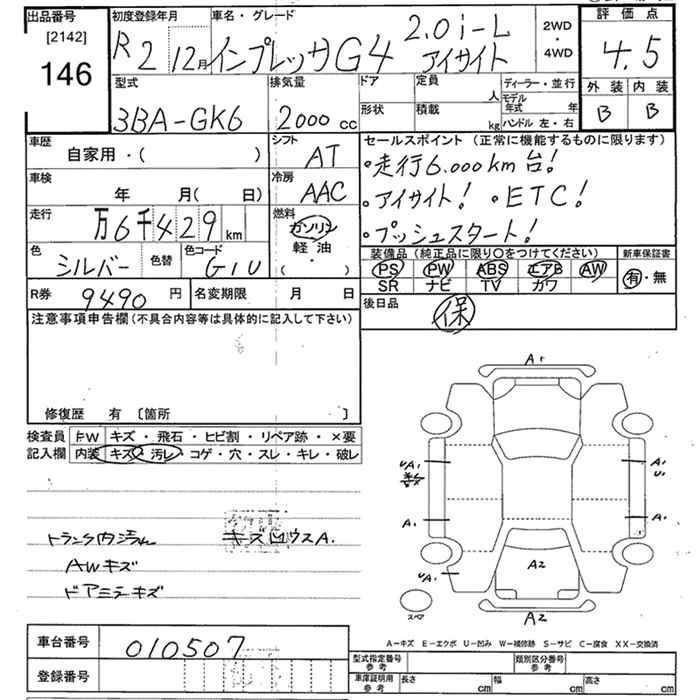 出品番号 初度登録年月 車名・グレード 2WD・4WD 評価点
[2142] R2 12月 インプレッサG4 2.0i-L アイサイト 4.5
146
型式 排気量 ドア 定員 人 ディーラー・並行 外装 内装
3BA-GK6 2000cc 形状 積載 kg モデル年式 年 B B
ハンドル 左・右
車歴 シフト セールスポイント (正常に機能するものに限ります)
自家用・( ) AT ・走行6.000km台!
車検 冷房 ・アイサイト! ・ETC!
年 月( 日) AAC
走行 燃料 ・プッシュスタート!
万6千429km ガソリン
色 色替 色コード 軽油 装備品 (純正品に限り○をつけてください) 新車保証書
シルバー G1U ・( ) PS PW ABS エアB AW 有・無
SR ナビ TV カワ
R券 9490円 名変期限 月 日 後日品
保
注意事項申告欄 (不具合内容等は具体的に記入して下さい)
修復歴 有 [箇所 ]
検査員 FW キズ・飛石・ヒビ割・リペア跡・×要
記入欄 内装 キズ・汚レ・コゲ・穴・スレ・キレ・破レ
A1
UA1 A1
U1
A1 A1
トランク内 キズ凹ウスA.
AWキズ A2
UA1
ドアミラーキズ
スペア A2
車台番号 010507
A−キズ E−エクボ U−凹み W−補修跡 S−サビ C−腐食 XX−交換済
登録番号 型式指定番号 参考 類別区分番号 参考
車庫証明用 参考 長さ cm 幅 cm 高さ cm